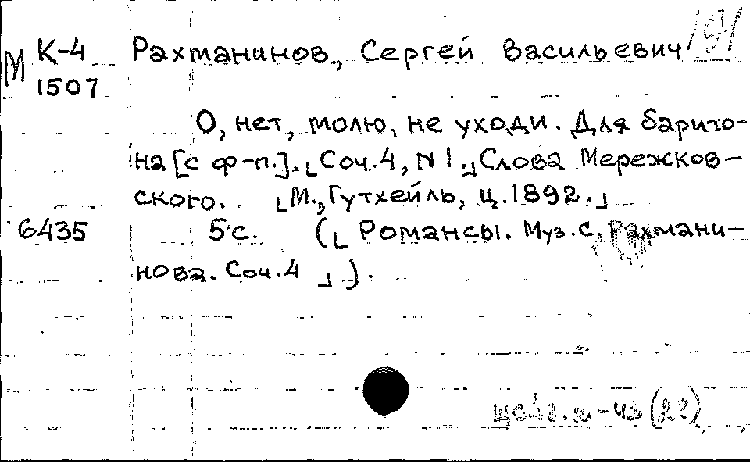 М К-4 Рахманинов, Сергей Васильевич
1507
О, нет, молю, не уходи. Для барито-
на [с ф-п.]. ⌞Соч.4, N 1.⌟ Слова Мережков-
ского. ⌞М., Гутхейль, ц. 1892.⌟
6435 5 с. (⌞ Романсы. Муз. С. Рахмани-
нова. Соч. 4 ⌟).
(22)